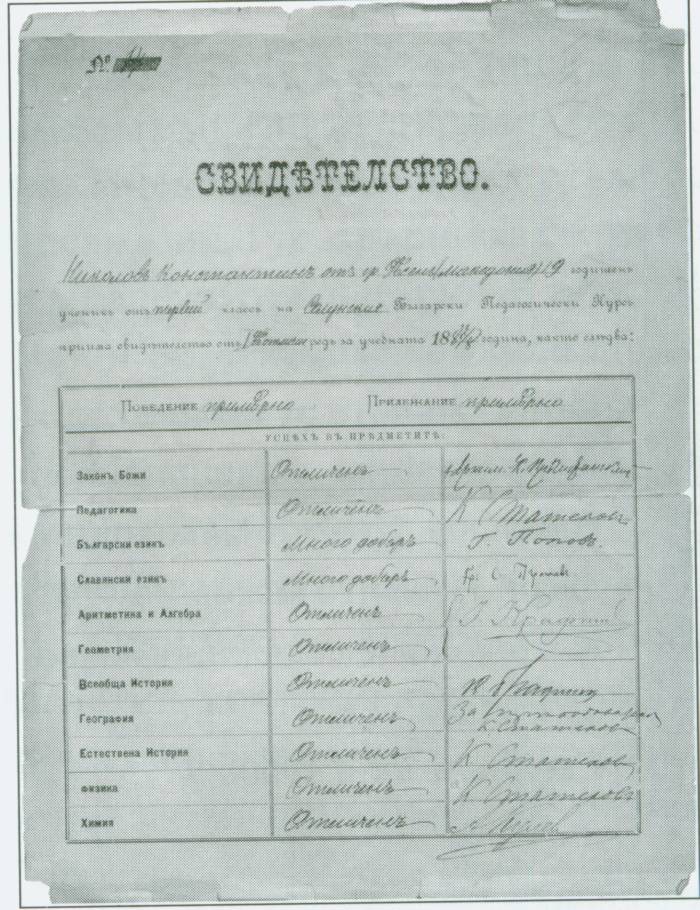 №
СВИДѢТЕЛСТВО.
Николовъ Константинъ отъ гр. (Македония) 19 годишенъ
ученикъ отъ первий классъ на Солунские Български Педагогически Курсъ
приима свидѣтелство отъ редъ за учебната 18 година, както слѣдва:
Поведение примѣрно Прилежание примѣрно
УСПѢХЪ ВЪ ПРѢДМЕТИТѢ:
Законъ Божи Отличенъ
Педагогика Отличенъ К Статковъ
Български езикъ Много добъръ Г. Поповъ.
Славянски езикъ Много добъръ
Аритметика и Алгебра Отличенъ
Геометрия Отличенъ
Всеобща История Отличенъ
География Отличенъ За К Статковъ
Естествена История Отличенъ К Статковъ
Физика Отличенъ К Статковъ
Химия Отличенъ